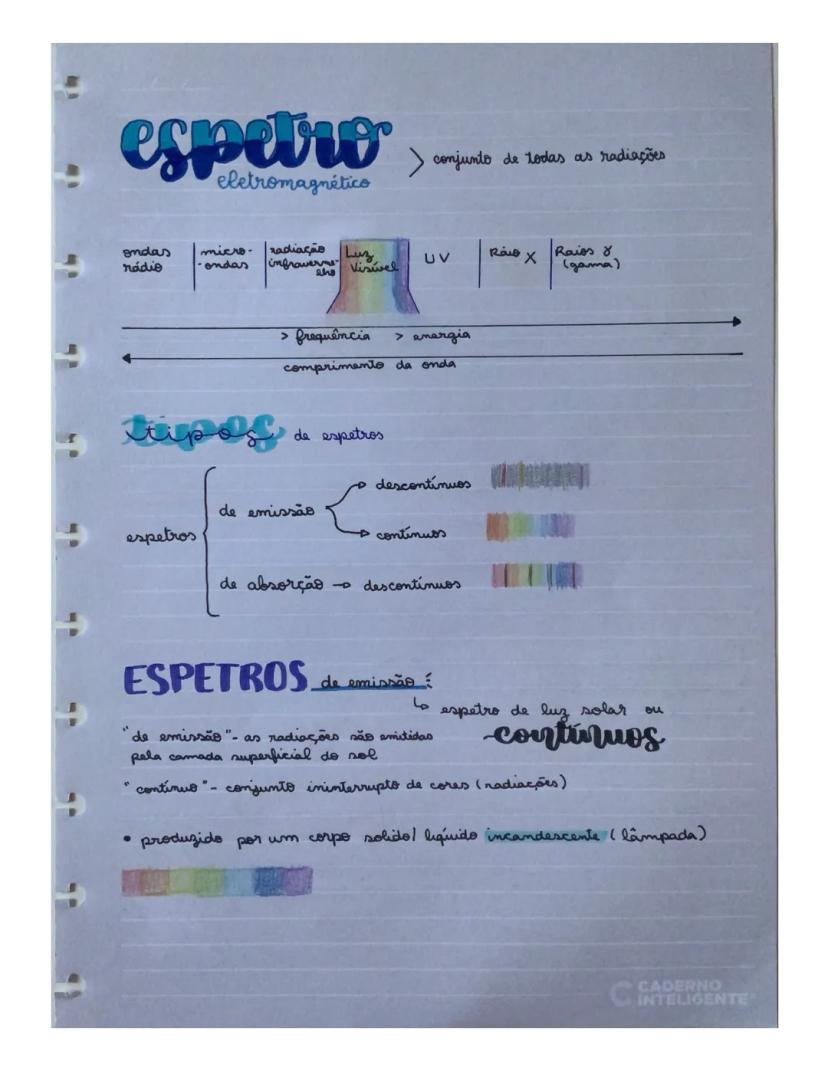 espetro
eletromagnético
> conjunto de todas as radiações
ondas rádio | micro-ondas | radiação infravermelho | Luz Visível | UV | Raio X | Raios γ (gama)
> frequência > energia
comprimento da onda
tipos de espetros
espetros
de emissão
descontínuos
contínuos
de absorção → descontínuos
ESPETROS de emissão :
↳ espetro de luz solar ou
contínuos
"de emissão" - as radiações são emitidas
pela camada superficial do sol
"contínuo" - conjunto ininterrupto de cores (radiações)
• produzido por um corpo solido/ líquido incandescente (lâmpada)
CADERNO
INTELIGENTE